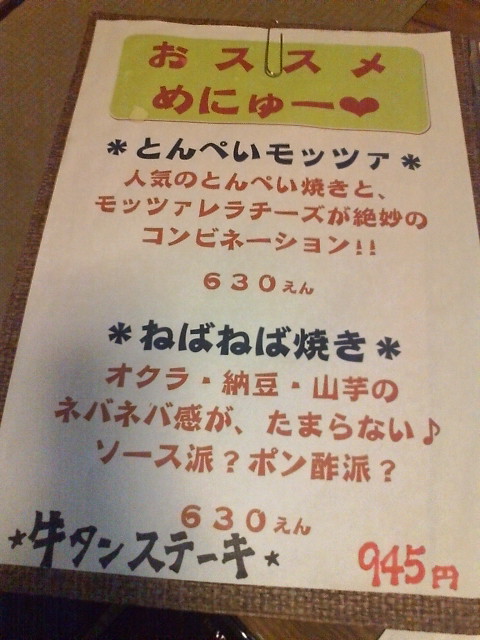 おススメ
めにゅー❤
＊とんぺいモッツァ＊
人気のとんぺい焼きと、
モッツァレラチーズが絶妙の
コンビネーション!!
６３０えん
＊ねばねば焼き＊
オクラ・納豆・山芋の
ネバネバ感が、たまらない♪
ソース派？ポン酢派？
６３０えん
★牛タンステーキ★ 945円